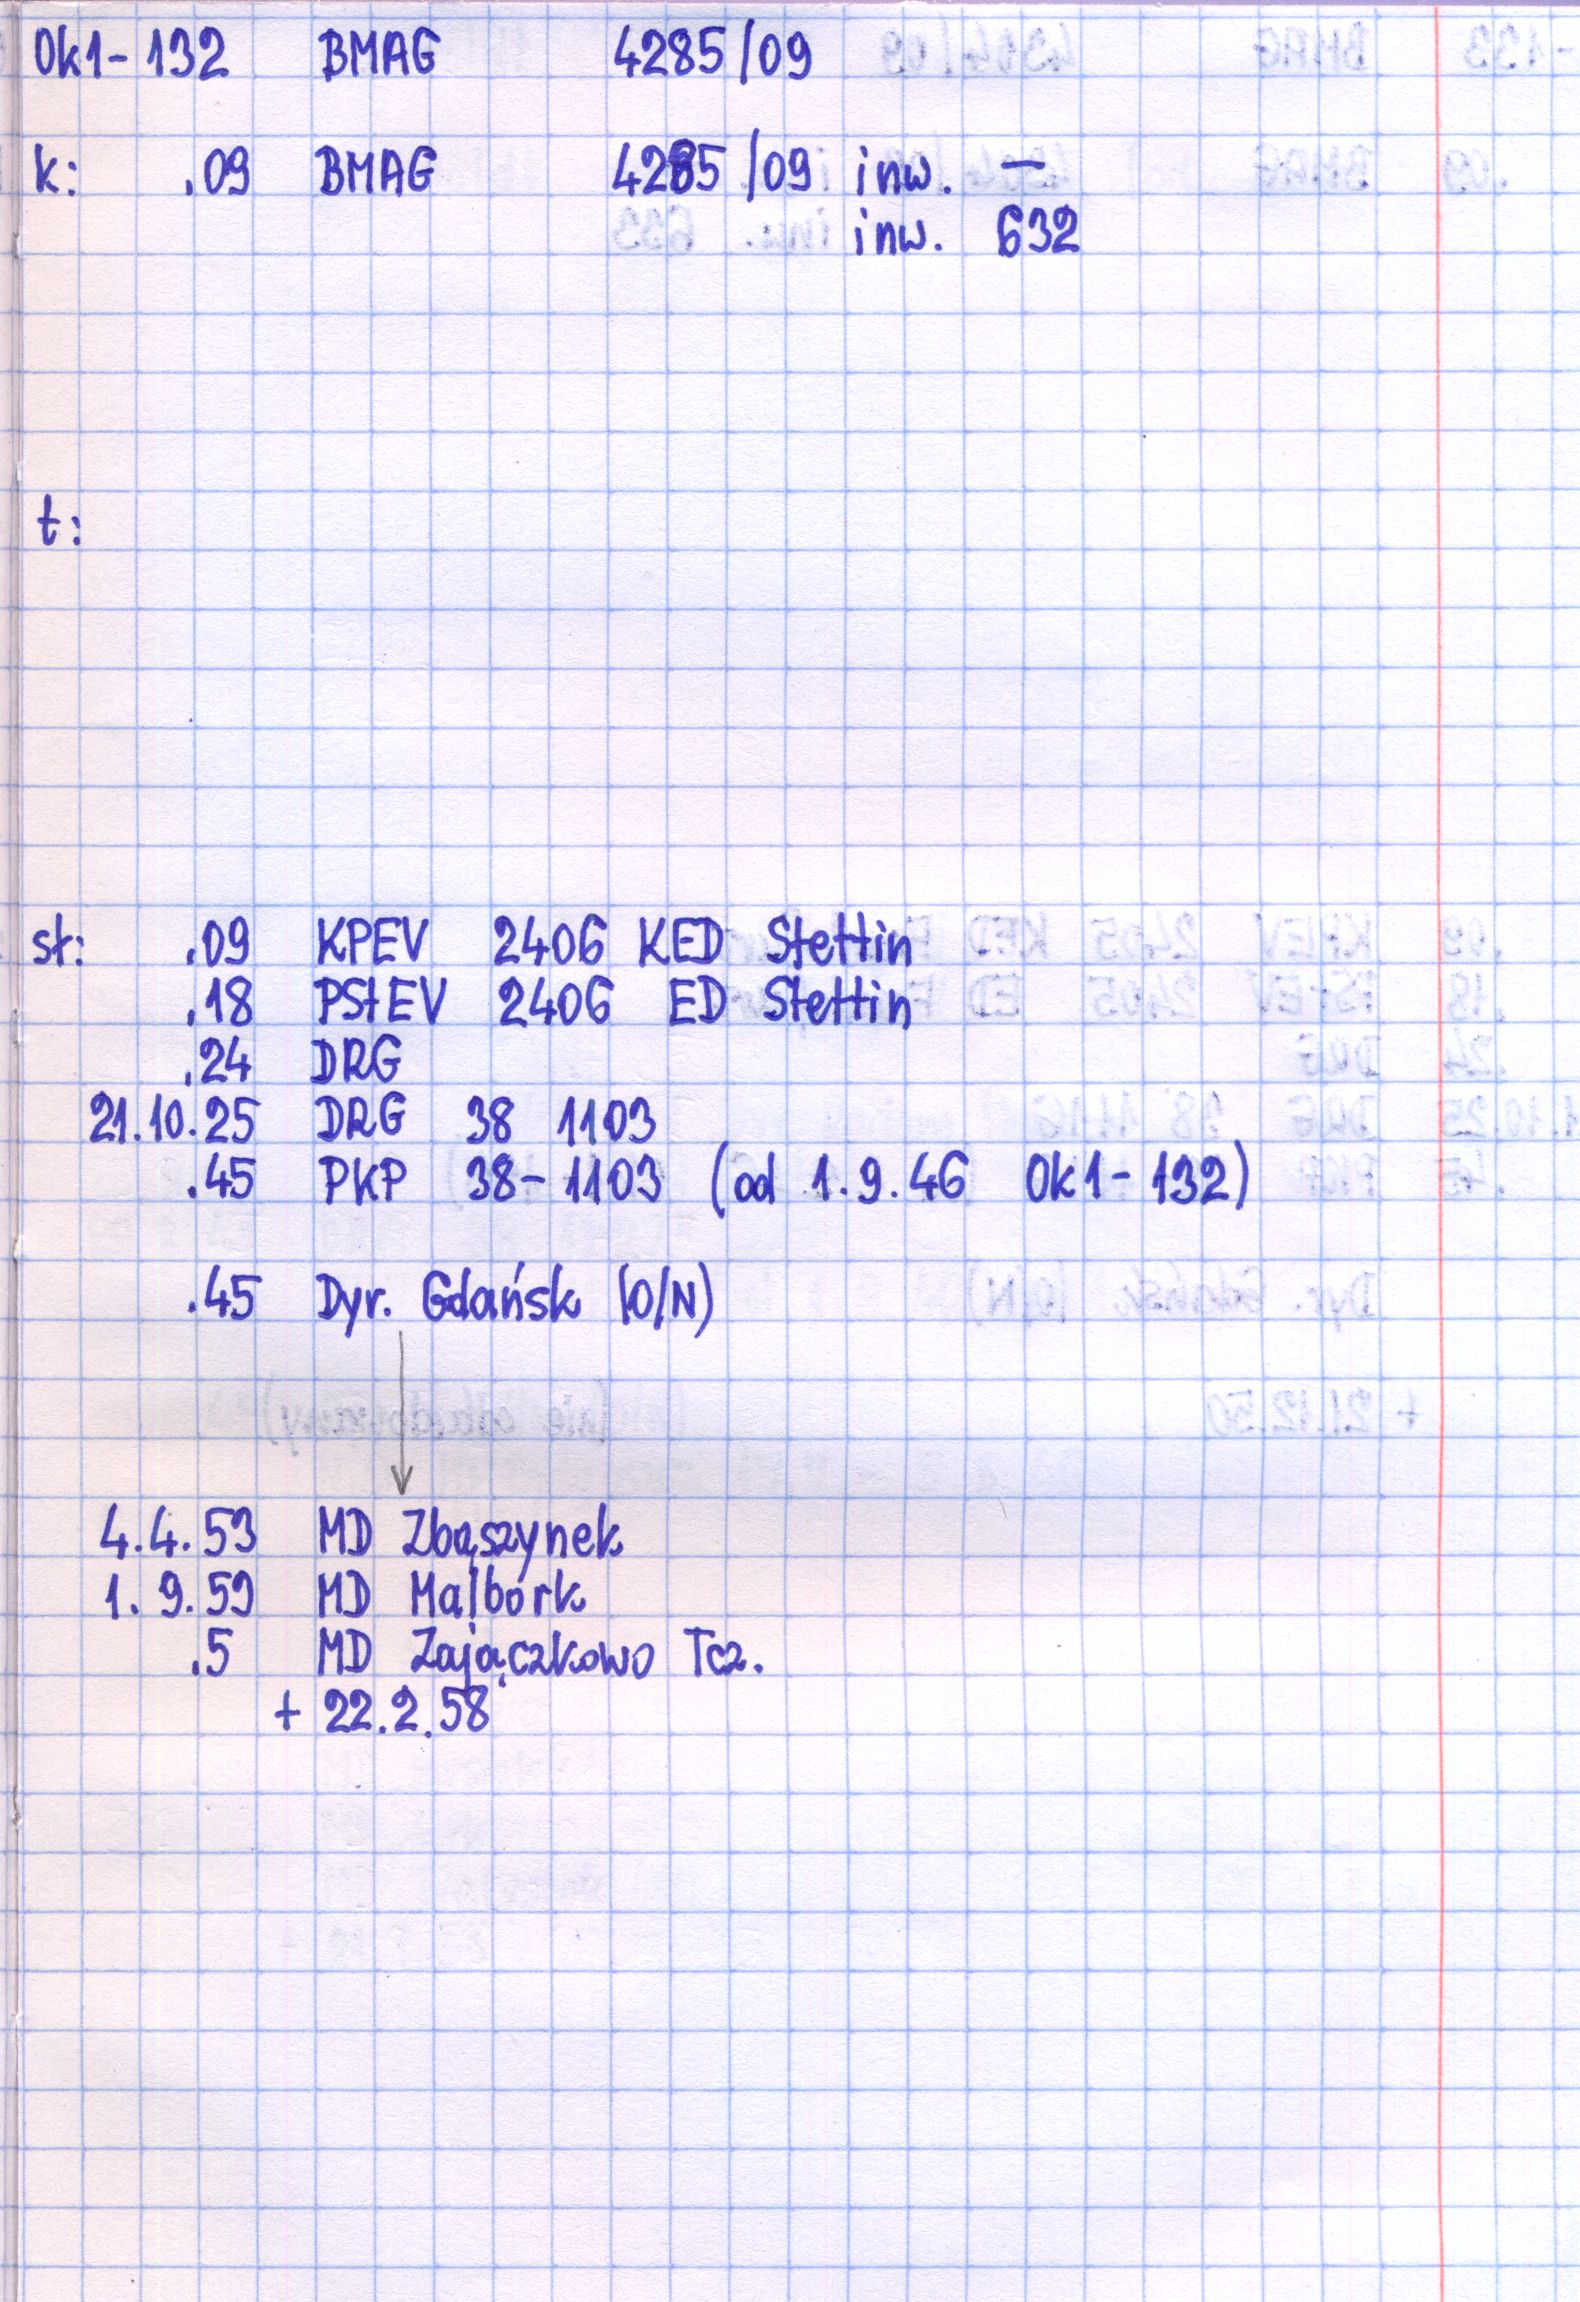 Ok1-132 BMAG 4285/09
k: .09 BMAG 4285/09 inw. —
inw. 632
t:
st: .09 KPEV 2406 KED Stettin
.18 PStEV 2406 ED Stettin
.24 DRG
21.10.25 DRG 38 1103
.45 PKP 38-1103 (od 1.9.46 Ok1-132)
.45 Dyr. Gdańsk (O/N)
4.4.53 MD Zbąszynek
1.9.59 MD Malbork
.5 MD Zajączkowo Tcz.
+ 22.2.58